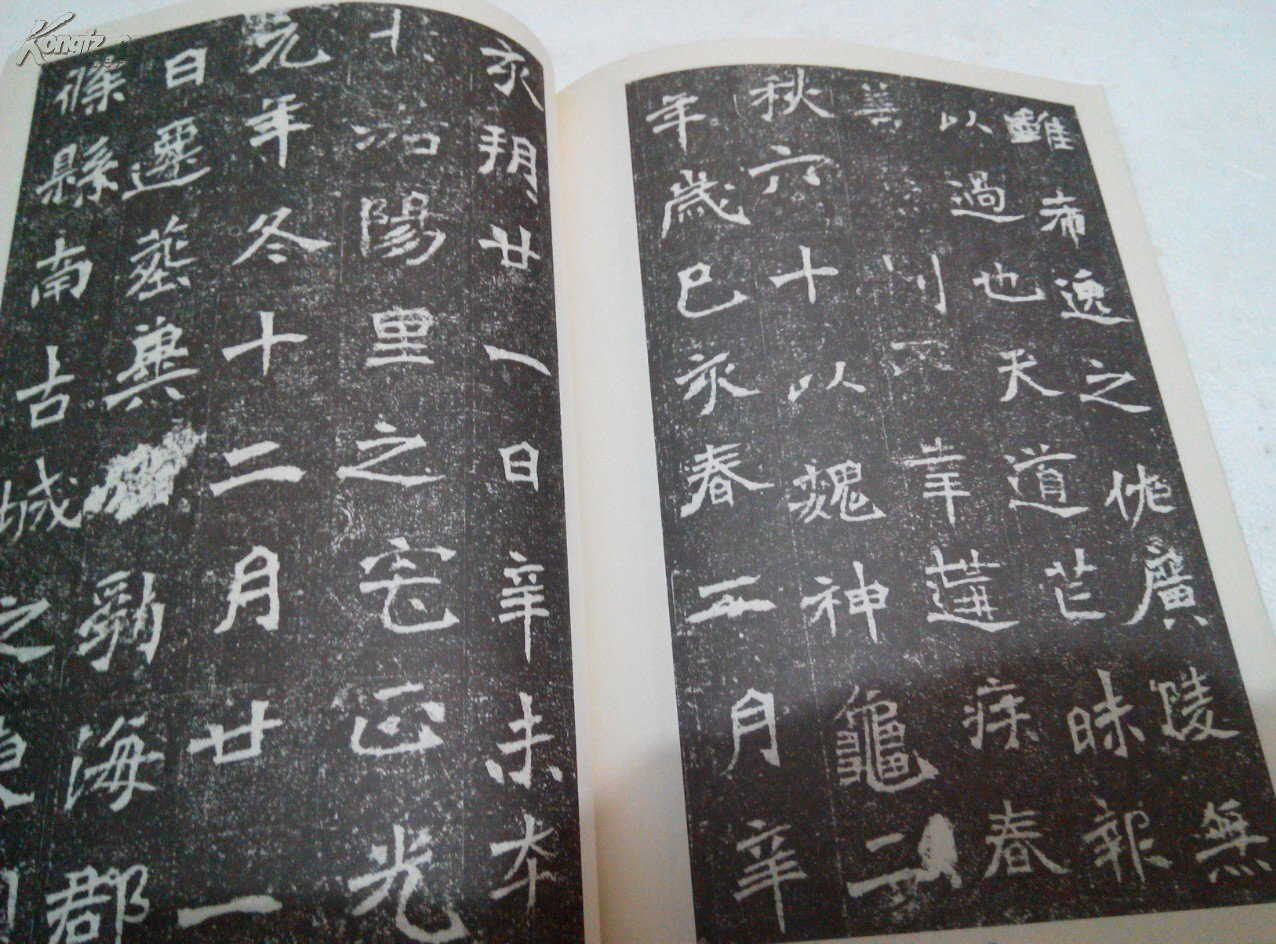 雖希逸之佐廣陵無
以過也天道芒昧報
善不幸遘疾春
秋六十以魏神龜二
年歲己亥春二月辛
亥朔廿一日辛未卒
洛陽里之宅正光
元年冬十二月廿一
日遷葬冀勃海郡
蓨縣南古城之東
Kongfz